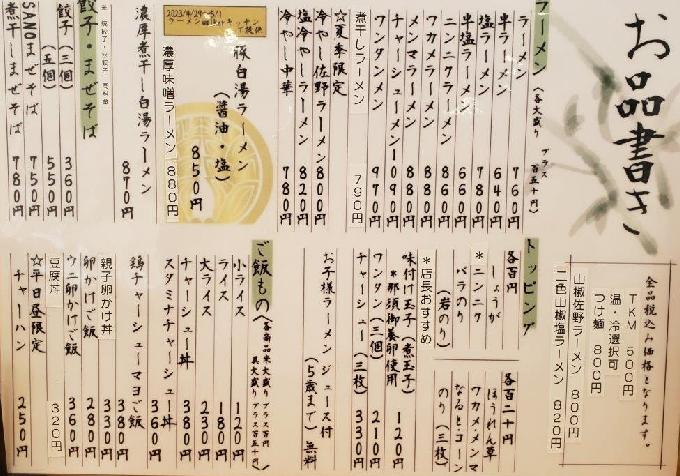 お品書き
全品税込み価格となります。
TKM 500円
温・冷選択可
つけ麺 800円
山椒佐野ラーメン 800円
二色山椒塩ラーメン 820円
ラーメン
(各大盛り プラス百五十円)
ラーメン 760円
半ラーメン 640円
塩ラーメン 780円
半塩ラーメン 660円
ニンニクラーメン
ワカメラーメン 860円
メンマラーメン 880円
チャーシューメン 1090円
ワンタンメン 970円
煮干しラーメン 790円
☆夏季限定
冷やし佐野ラーメン 800円
塩冷やしラーメン 820円
冷やし中華 780円
ラーメン
豚白湯ラーメン
(醤油・塩) 850円
濃厚味噌ラーメン 880円
濃厚煮干し白湯ラーメン 870円
餃子・まぜそば
餃子(三個) 360円
(五個) 550円
SANOまぜそば 750円
煮干しまぜそば 780円
トッピング
各百円
しょうが
*ニンニク
バラのり
(岩のり)
各百二十円
ほうれん草
ワカメ・メンマ
なると・コーン
のり(三枚)
*店長おすすめ
味付け玉子(煮玉子) 120円
*那須御養卵使用
ワンタン(三個) 210円
チャーシュー(三枚) 330円
お子様ラーメン ジュース付
(5歳まで) 無料
ご飯もの
(各商品米大盛りプラス百円
具大盛りプラス百五十円)
小ライス 120円
ライス 180円
大ライス 230円
チャーシュー丼 380円
スタミナチャーシュー丼 360円
鶏チャーシューマヨご飯 380円
親子卵かけ丼 330円
卵かけご飯 280円
ウニ卵かけご飯 360円
豆腐丼 320円
☆平日昼限定
チャーハン 250円